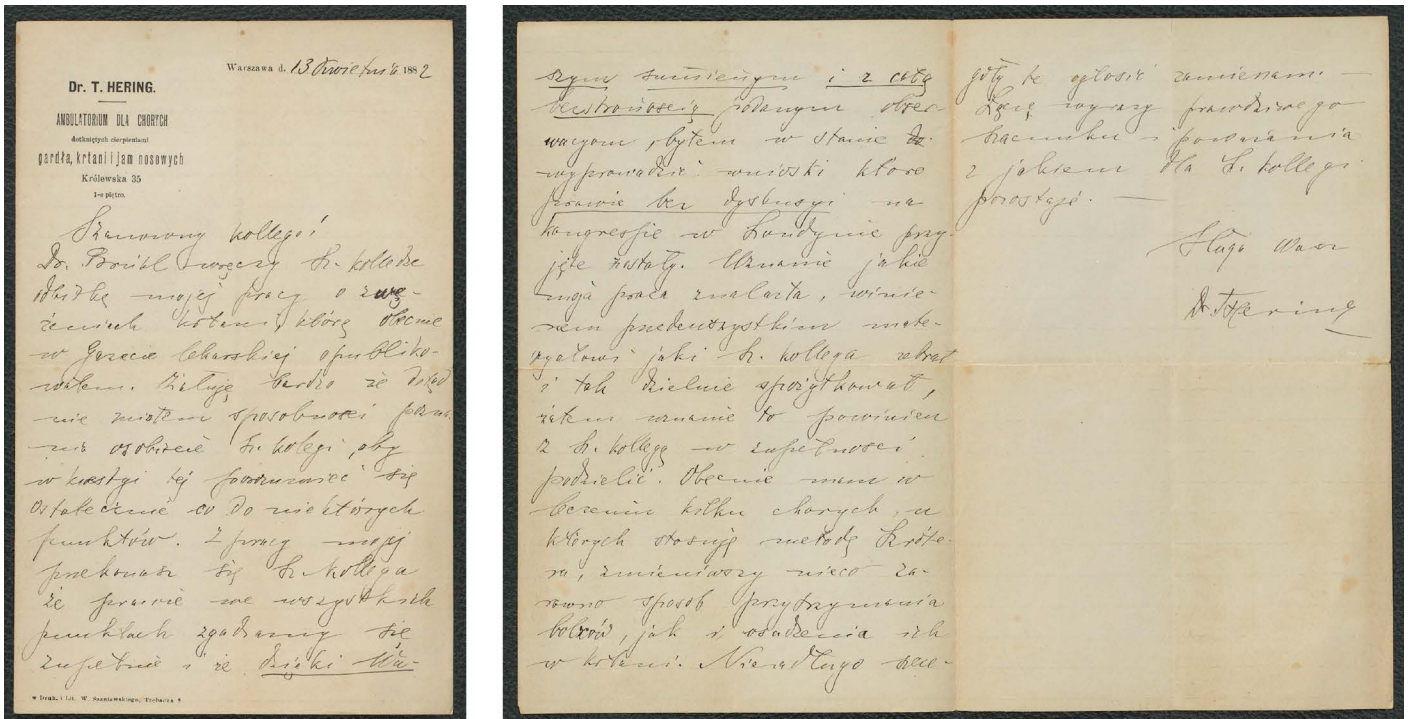 Warszawa d. 13 Kwietnia 1882
Dr. T. HERING.
AMBULATORIUM DLA CHORYCH
dotkniętych cierpieniami
gardła, krtani i jam nosowych
Królewska 35
1-e piętro.
Szanowny kollego!
Dr. Brühl wręczy Sz. kolledze
odbitkę mojej pracy o zwę-
żeniach krtani, którą obecnie
w Gazecie lekarskiej opubliko-
wałem. Żałuję bardzo że dotąd
nie miałem sposobności pozna-
nia osobiście Sz. kolegi, aby
w kwestyi tej porozumieć się
ostatecznie co do niektórych
punktów. Z pracy mojej
przekonasz się Sz. kollega
że prawie we wszystkich
punktach zgadzamy się
zupełnie i że dzięki Wa-
Druk. i Lit. W. Szaniawskiego, Trębacka 8
szym sumiennym i z całą
bezstronością podanym obser-
wacyom, byłem w stanie
wyprowadzić wnioski które
prawie bez dyskusyi na
kongressie w Londynie przy-
jęte zostały. Uznanie jakie
moja praca znalazła, winie-
nem przedewszystkim mate-
ryałowi jaki Sz. kollega zebrał
i tak dzielnie spożytkował,
zatem uznanie to powinien
z Sz. kollegą w zupełności
podzielić. Obecnie mam w
leczeniu kilku chorych, u
których stosuję metodę Schröte-
ra, zmieniwszy nieco za-
równo sposób przytrzymania
bolców, jak i osadzenia ich
w krtani. Niezadługo szcze-
góły te ogłosić zamierzam. —
Łączę wyrazy prawdziwego
szacunku i poważania
z jakiem dla Sz. kollegi
pozostaję. —
Sługa Wasz
Dr THering